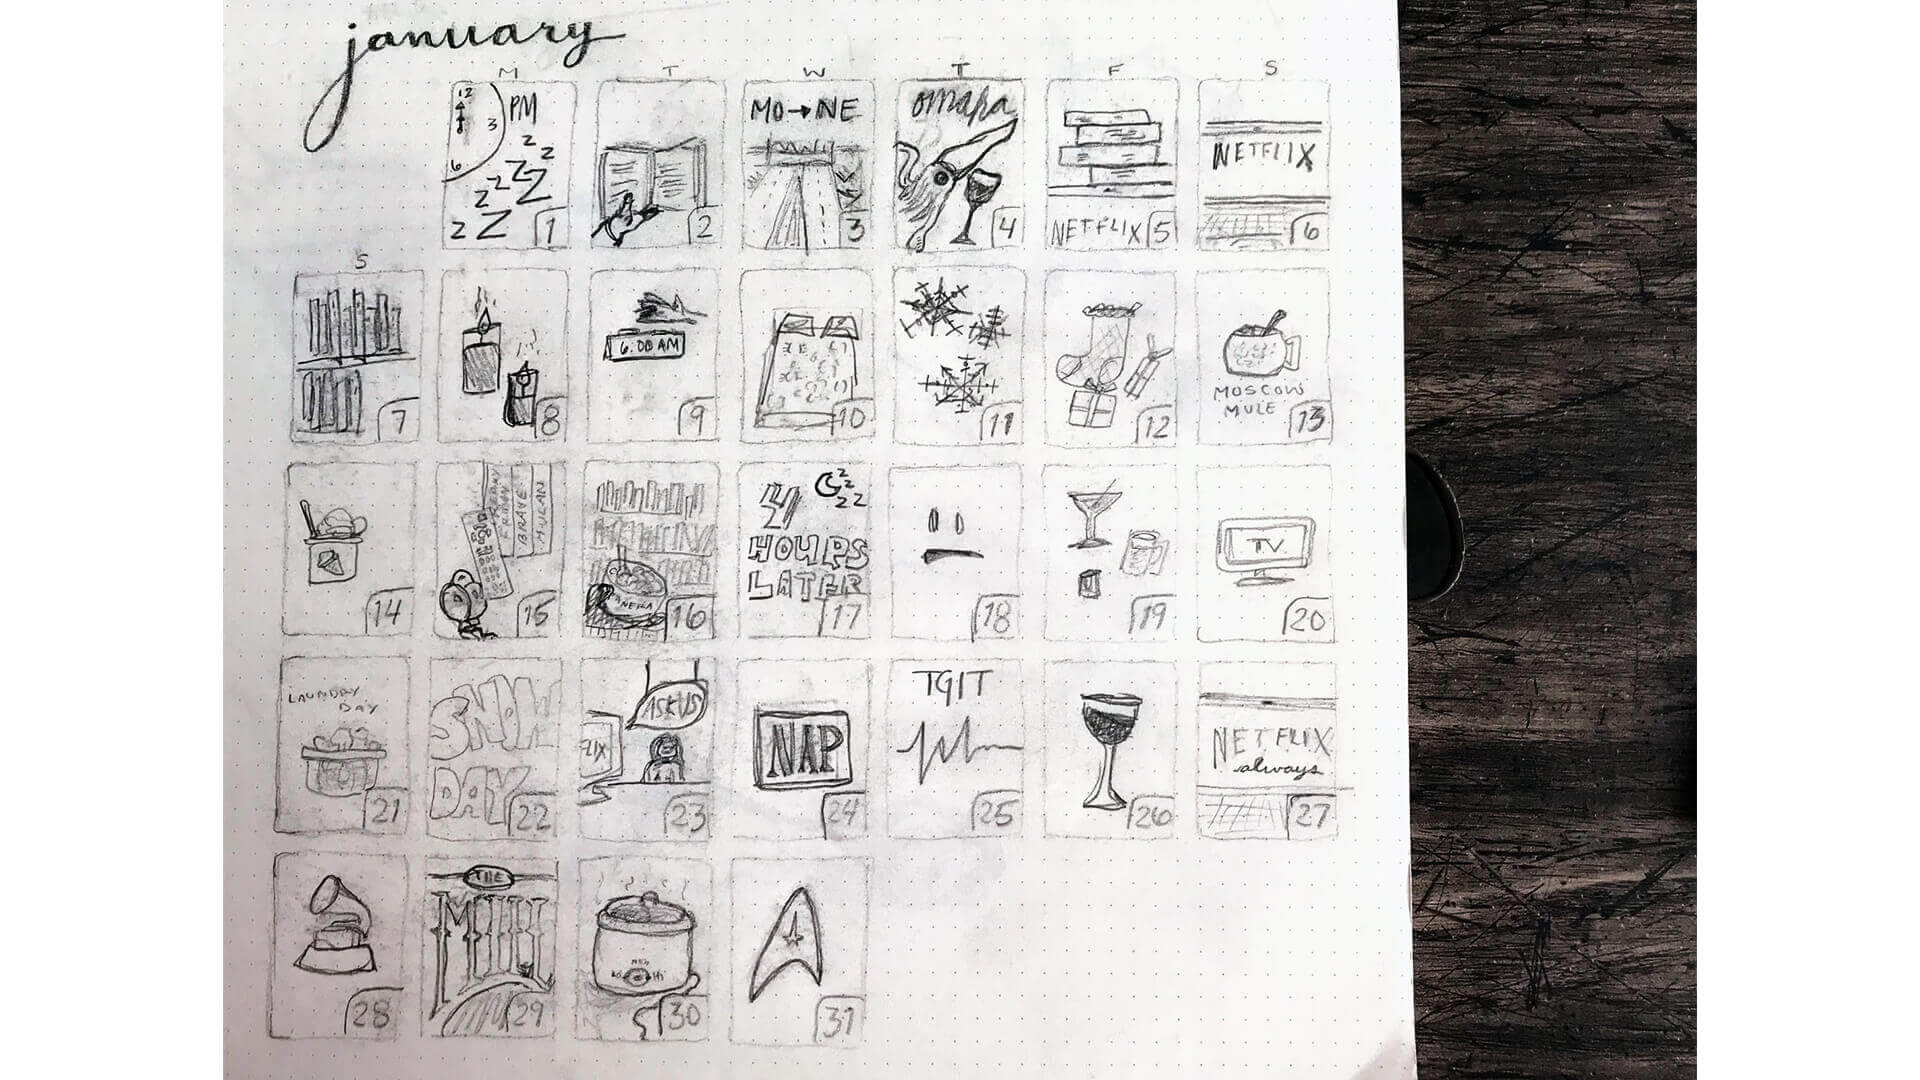 january
M T W T F S
12
3
6
PM
z z z z z Z z Z
1
2
MO→NE
3
omaha
4
NETFLIX
5
NETFLIX
6
S
7
8
6:00 AM
9
10
11
12
MOSCOW
MULE
13
14
BRAVE
MULAN
15
PANERA
16
z z z z
4
HOURS
LATER
17
18
19
TV
20
LAUNDRY
DAY
21
SNOW
DAY
22
ASK US
LIX
23
NAP
24
TGIT
25
26
NETFLIX
always
27
28
THE
MILL
29
30
31